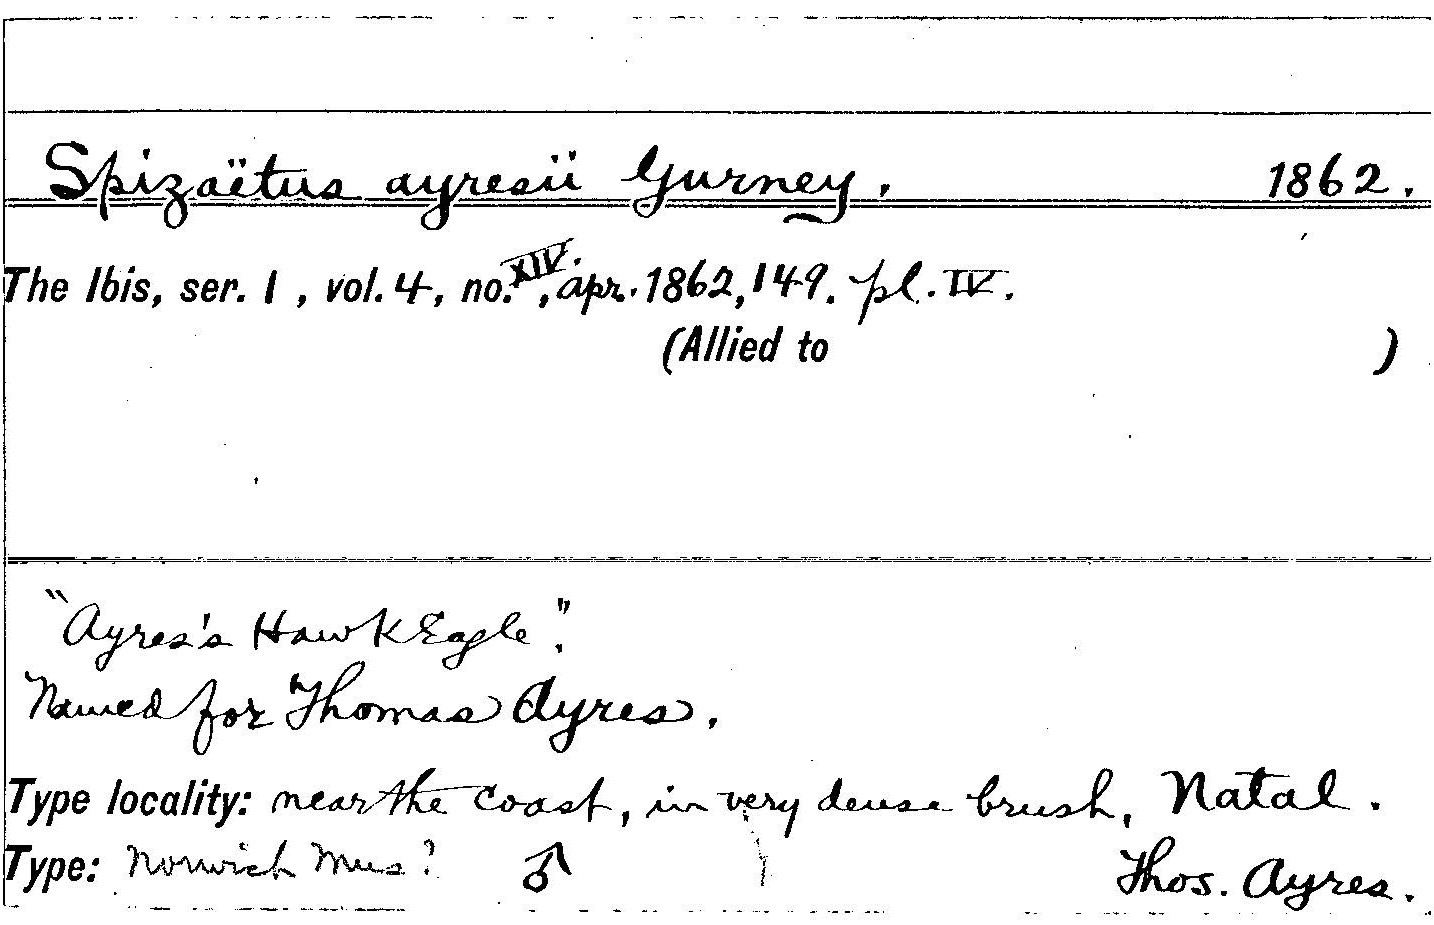 Spizaëtus ayresii Gurney. 1862.
The Ibis, ser. 1, vol. 4, no. XIV., apr. 1862, 149. pl. IV.
(Allied to )
"Ayres's Hawk Eagle".
Named for Thomas Ayres.
Type locality: near the coast, in very dense brush, Natal.
Type: Norwich Mus? ♂ Thos. Ayres.